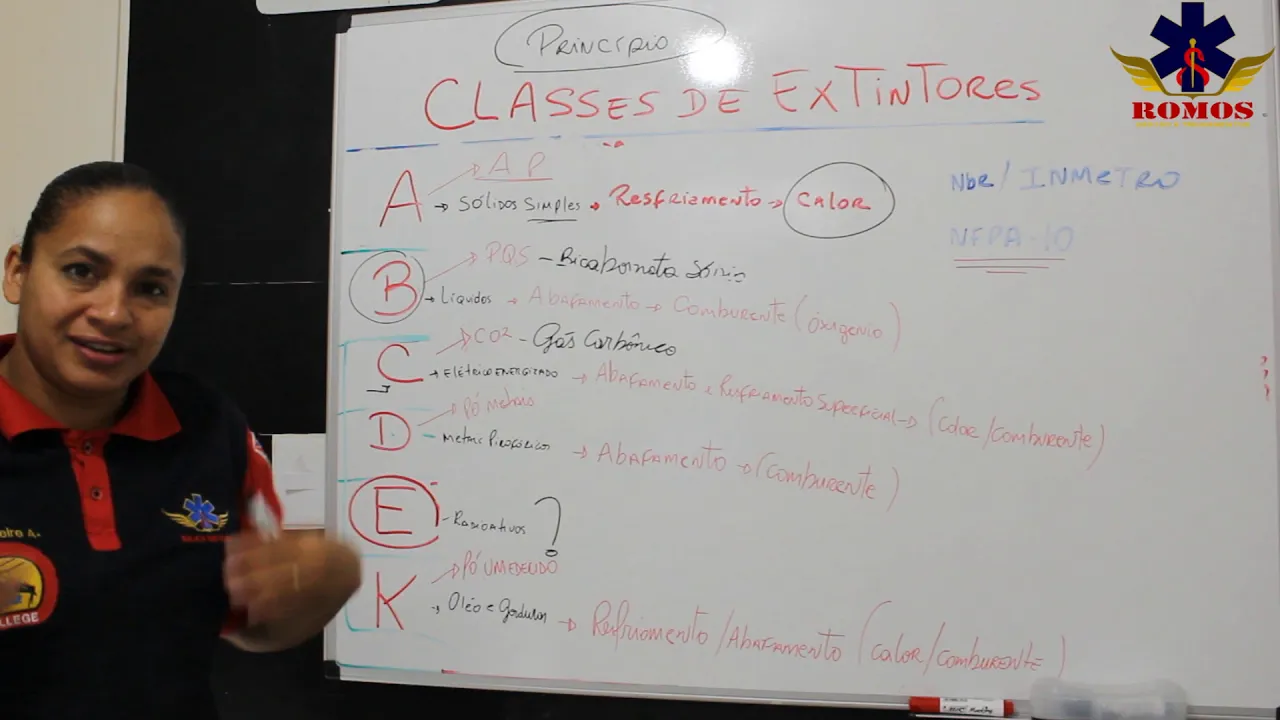 PRINCÍPIO
CLASSES DE EXTINTORES
ROMOS
NBR / INMETRO
NFPA-10
A → AP
→ SÓLIDOS SIMPLES → Resfriamento → CALOR
B → PQS - Bicabornato Sódio
→ Líquidos → Abafamento → Comburente (óxigenio)
C → CO2 - Gás Carbônico
→ ELÉTRICO ENERGIZADO → Abafamento e Resfriamento Superficial → (Calor/Comburente)
D → Pó Metais
- Metais Pirofóricos → Abafamento → (Comburente)
E - Radioativos ?
K → Pó UMEDEUDO
→ Oléo e gorduras → Resfriamento / Abafamento (calor/comburente)
LLEGE